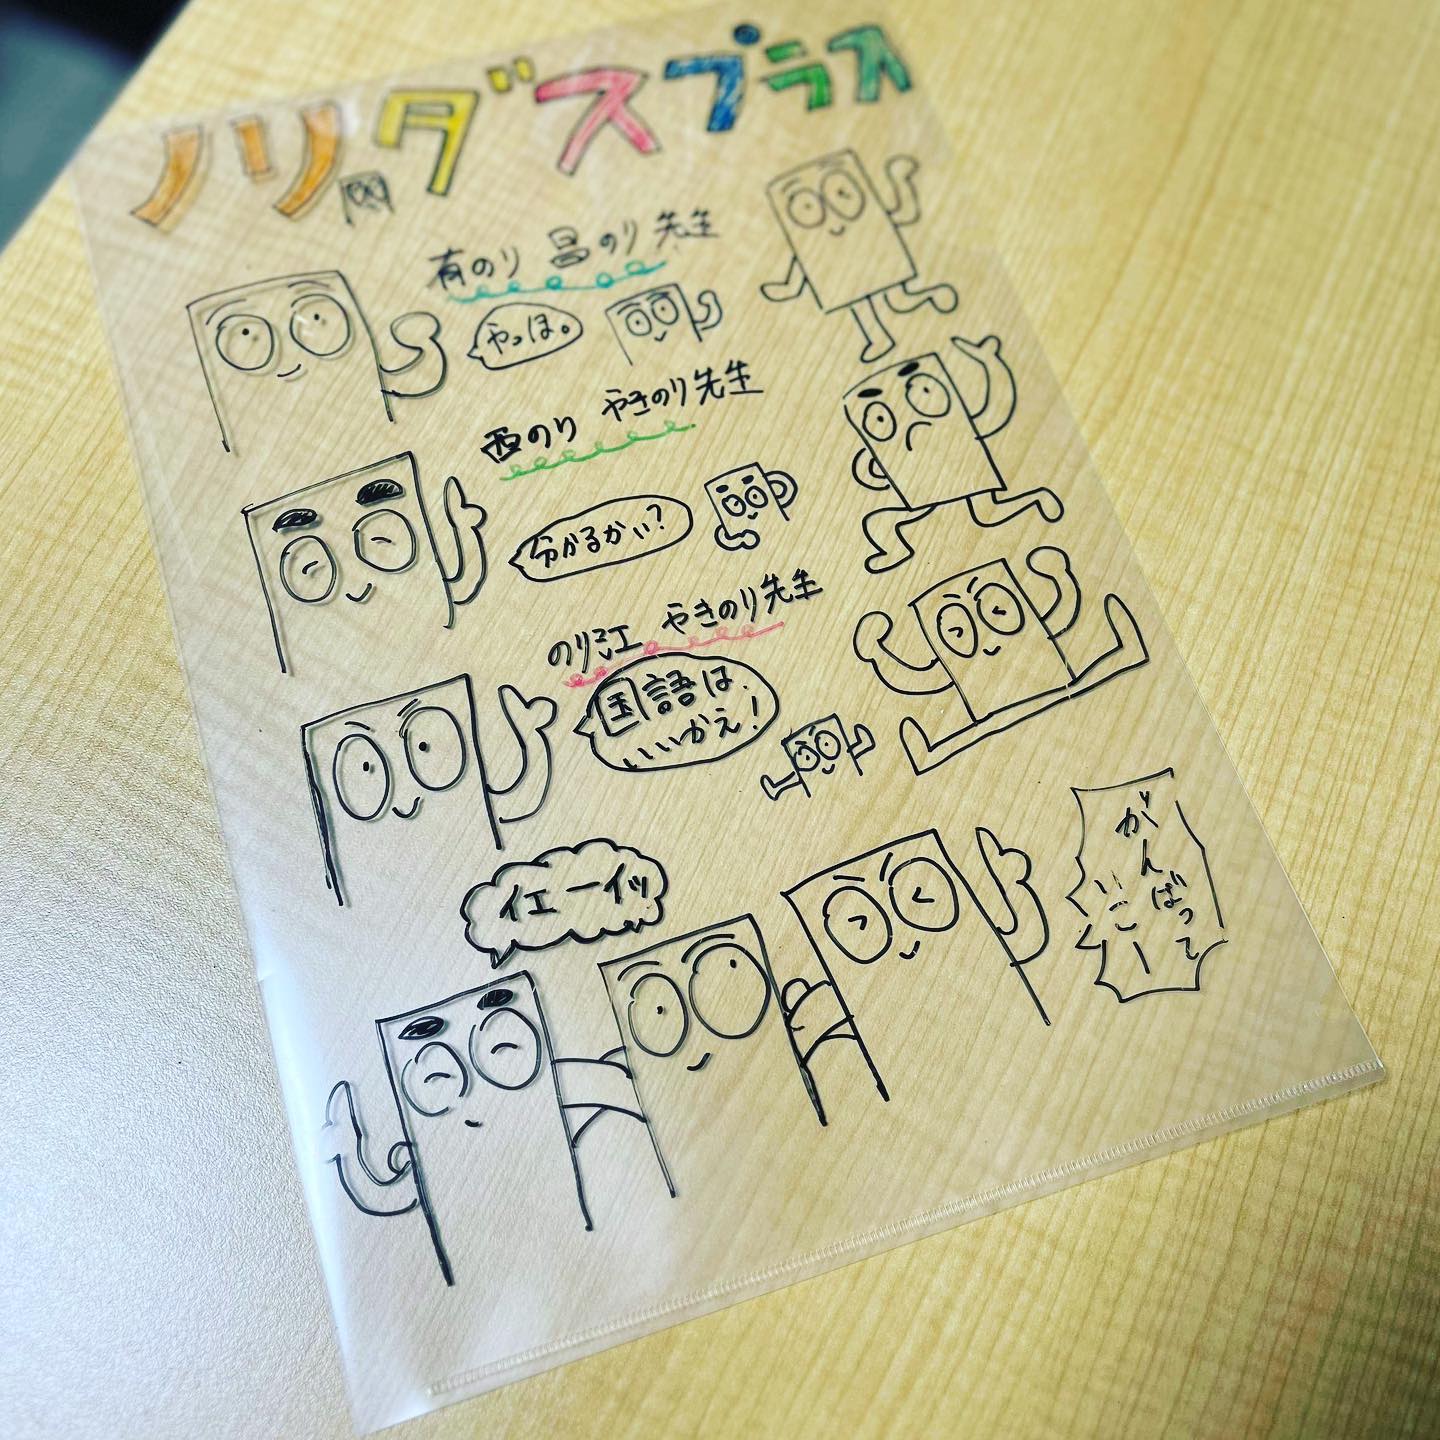 ノリダスプラス
有のり 昌のり先生
やっほ。
西のり やきのり先生
分かるかい?
のり江 やきのり先生
国語は
いいかえ!
イエーイッ
がんばって
いこー